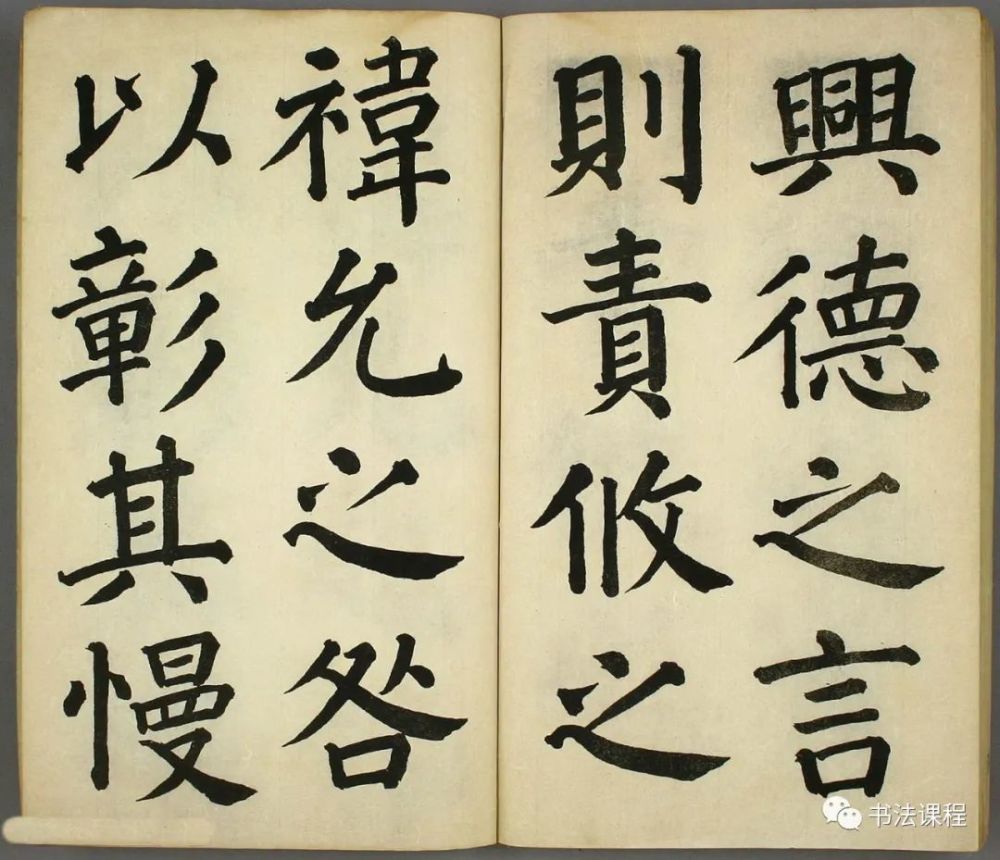 興德之言
則責攸之
禕允之咎
以彰其慢
书法课程